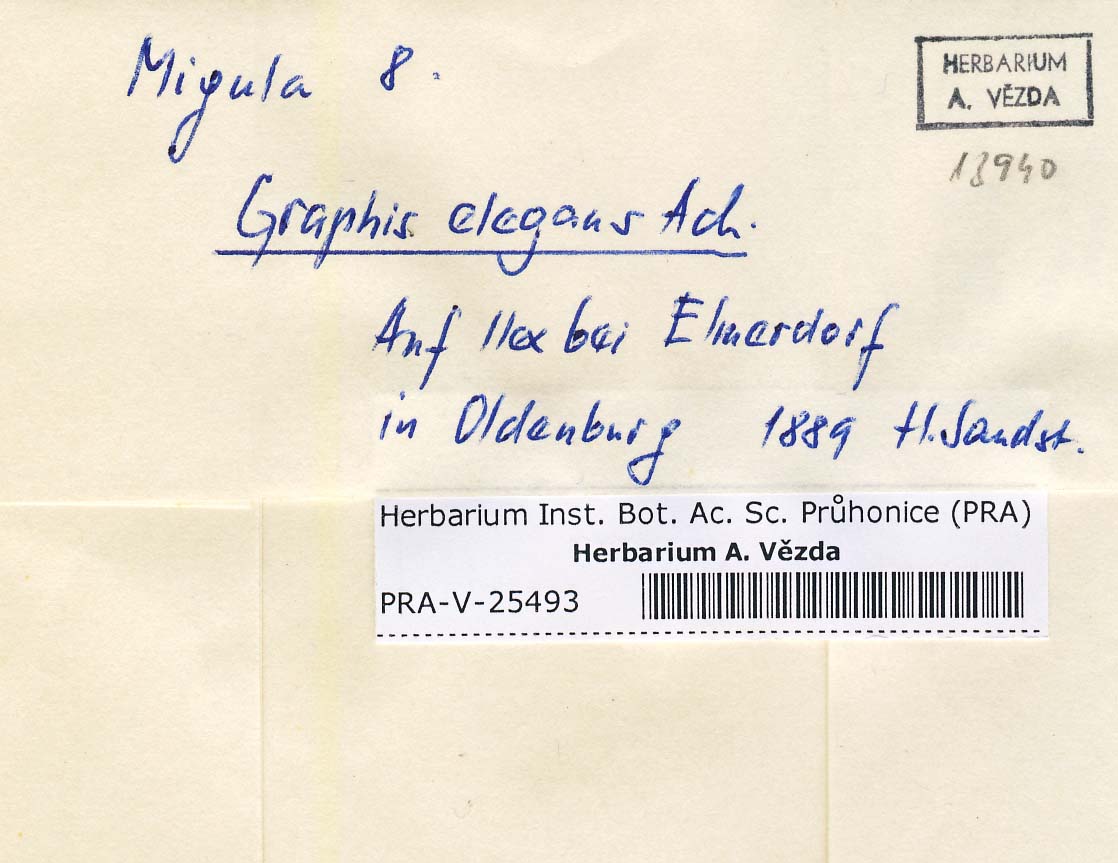 Migula 8.
HERBARIUM
A. VĚZDA
13940
Graphis elegans Ach.
Auf Ilex bei Elmerdorf
in Oldenburg 1889 H. Sandst.
Herbarium Inst. Bot. Ac. Sc. Průhonice (PRA)
Herbarium A. Vězda
PRA-V-25493